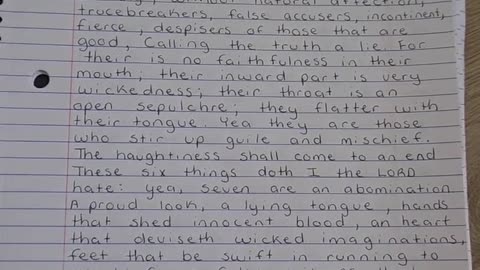 without natural affection,
trucebreakers, false accusers, incontinent,
fierce, despisers of those that are
good, Calling the truth a lie. For
their is no faithfulness in their
mouth; their inward part is very
wickedness; their throat is an
open sepulchre; they flatter with
their tongue. Yea they are those
who stir up guile and mischief.
The haughtiness shall come to an end
These six things doth I the LORD
hate: yea, seven are an abomination
A proud look, a lying tongue, hands
that shed innocent blood, an heart
that deviseth wicked imaginations,
feet that be swift in running to